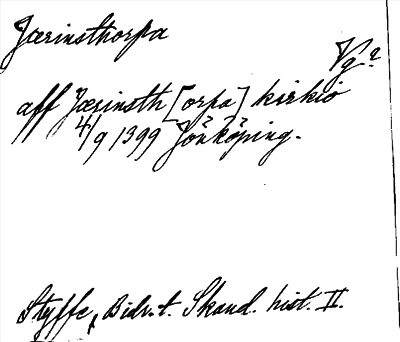 Jærinsthorpa
Vg.?
aff Jærinsth [orpa] kirkio
4/9 1399 Jönköping.
Styffe, Bidr. t. Skand. hist. II.